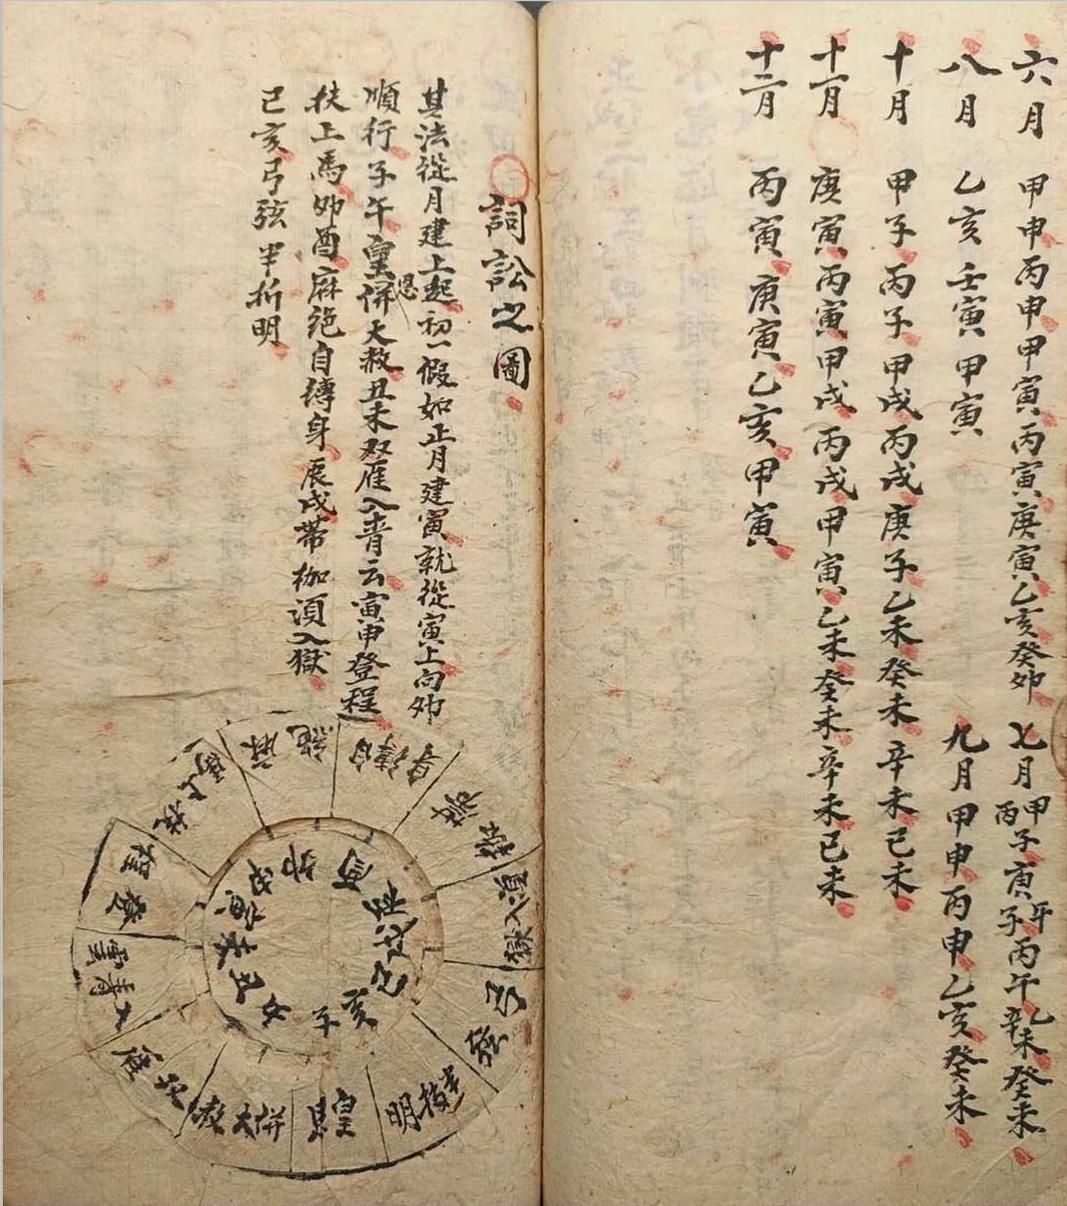 六月 甲申丙申甲寅丙寅庚寅乙亥癸卯
七月甲子丙寅午子丙午辛乙未癸未
八月 乙亥壬寅甲寅
九月甲申丙申乙亥癸未
十月 甲子丙子甲戌丙戌庚子乙未癸未辛未己未
十一月 庚寅丙寅甲戌丙戌甲寅乙未癸未辛未己未
十二月 丙寅庚寅乙亥甲寅
詞訟之圖
其法從月建上起初一假如正月建寅就從寅上向卯
順行子午皇恩併大赦丑未双雁入青云寅申登程
扶上馬卯酉麻绝自縛身辰戌带枷須入獄
己亥弓弦半折明
皇恩
併大赦
双雁
入青雲
登程
扶上馬
麻繩
自縛身
帶枷
須入獄
弓弦
半折明
子
丑
寅
卯
亥